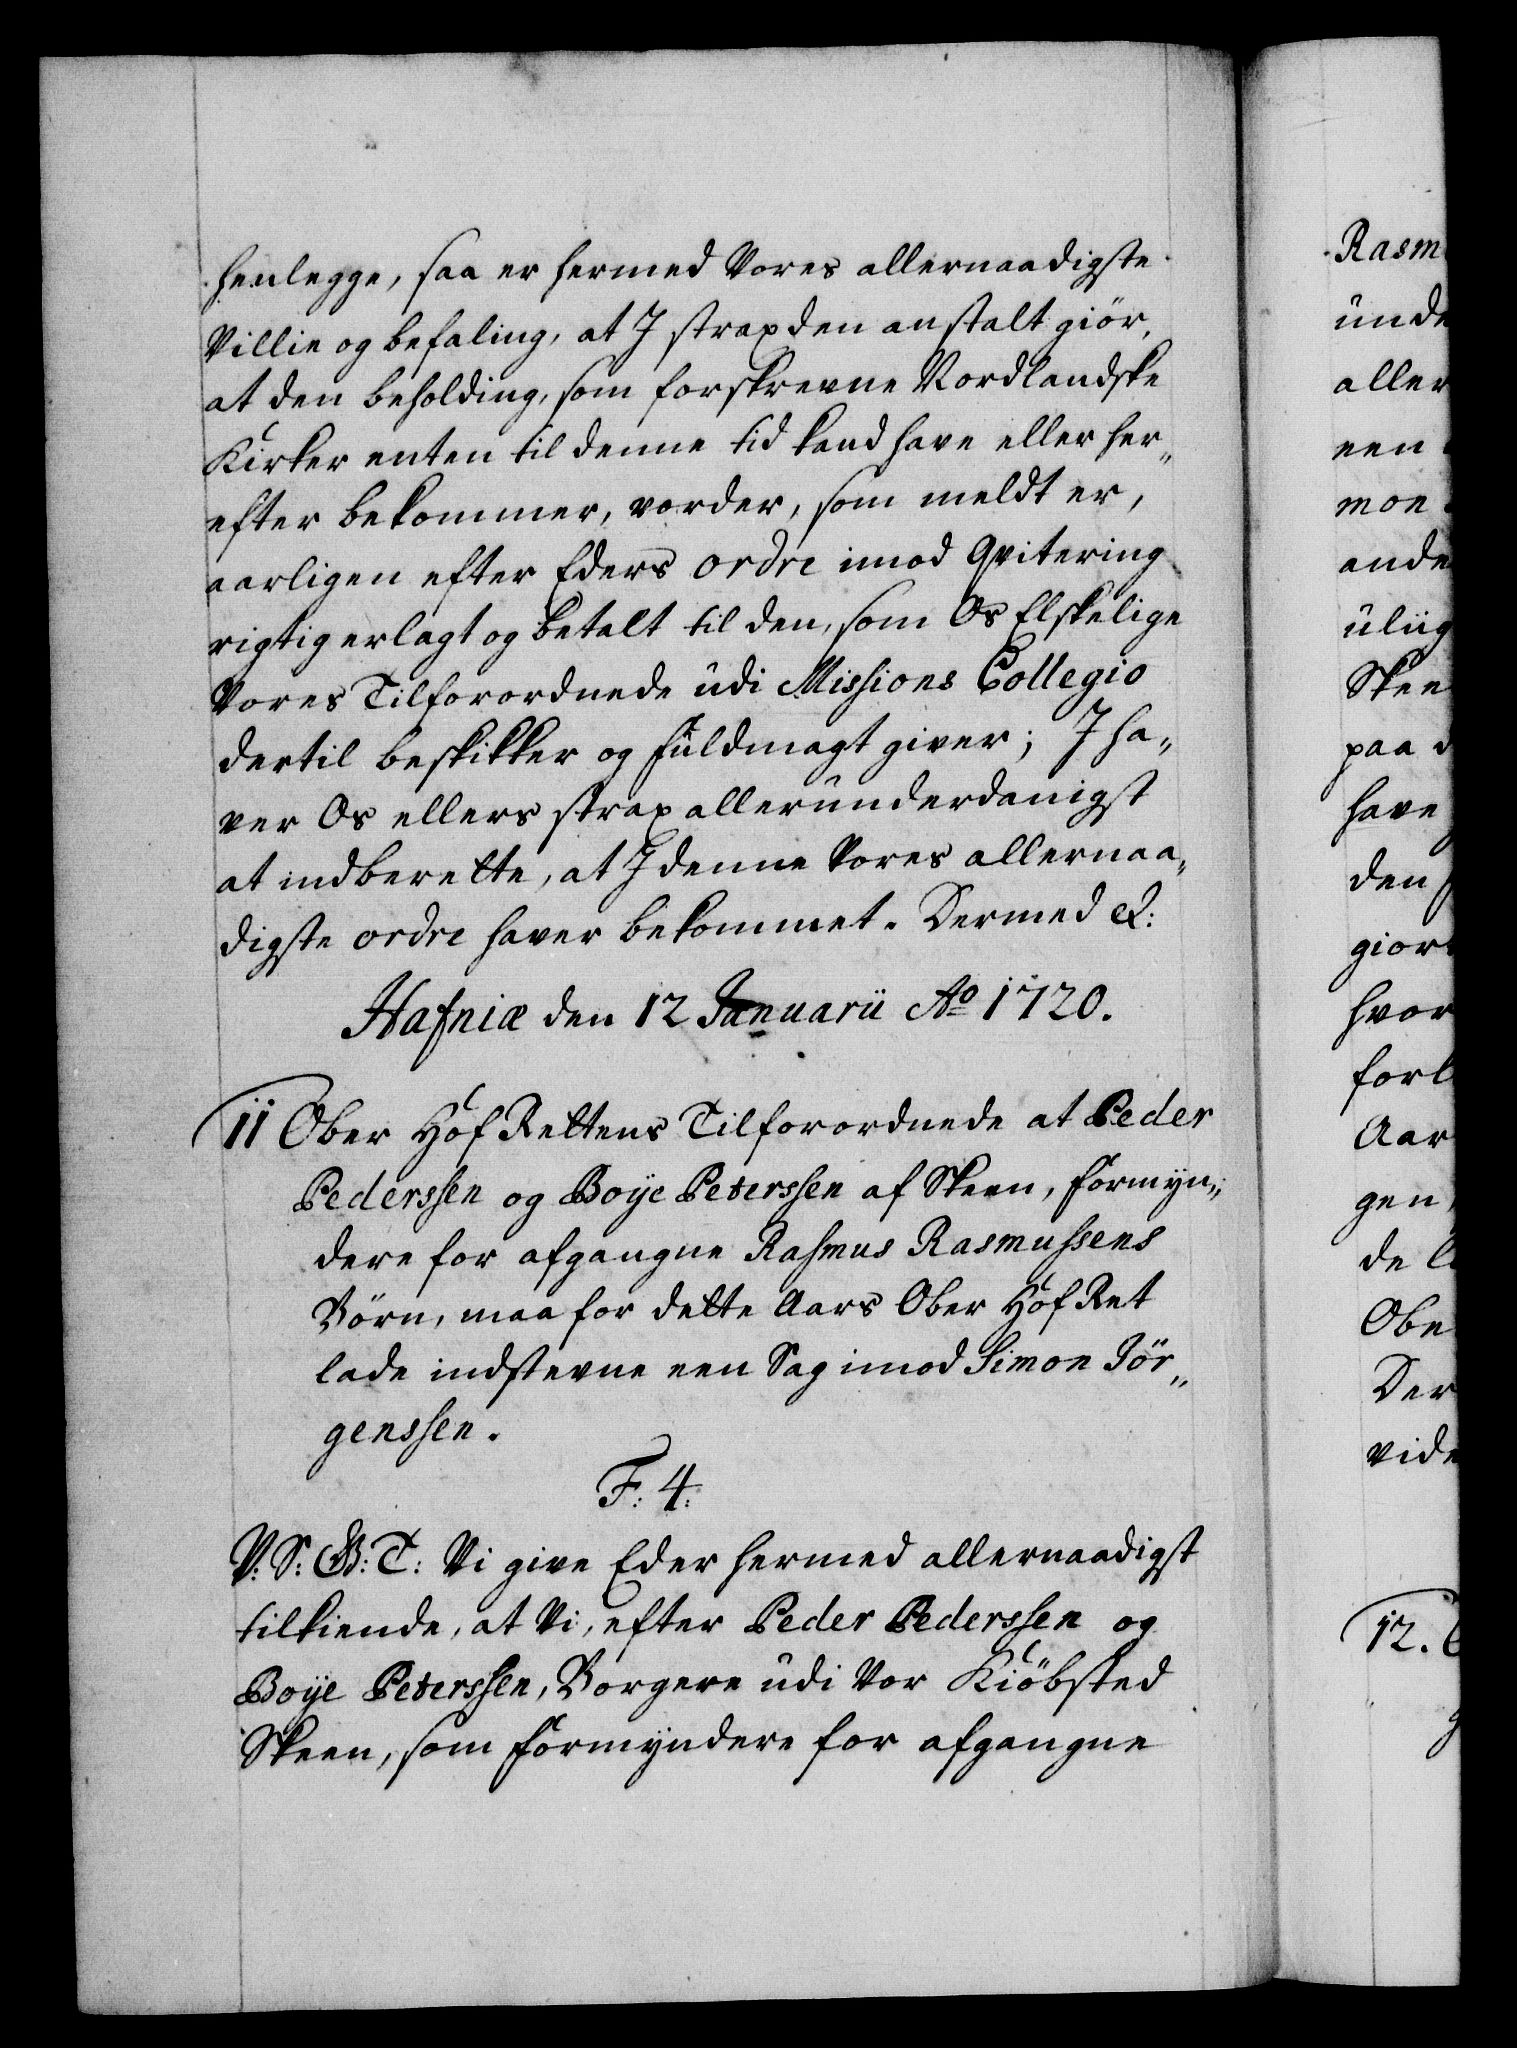 henlegge, saa er hermed Vores allernaadigste
Villie og befaling, at I strax den anstalt giör,
at den beholding, som forskrevne Nordlandske
Kirker enten til denne tid kand have eller her„
efter bekommer, vorder, som meldt er,
aarligen efter Eders ordre imod Qvitering
rigtig erlagt og betalt til den, som Os Elskelige
Vores Tilforordnede udi Missions Collegio
dertil beskikker og fuldmagt giver; I ha„
ver Os ellers strax allerunderdanigst
at indberette, at I denne Vores allernaa„
digste ordre haver bekommet. Dermed &:
Hafniæ den 12 Januarii Ao 1720.
11 Ober Hof Rettens Tilforordnede at Peder
Pederssen og Boye Peterssen af Skeen, formyn„
dere for afgangne Rasmus Rasmussens
Börn, maa for dette Aars Ober Hof Ret
lade indstevne een Sag imod Simon Jör„
genssen.
F: 4:
V: S: G: T: Vi give Eder hermed allernaadigst
tilkiende, at Vi, efter Peder Pederssen og
Boye Peterssen, Borgere udi Vor Kiöbsted
Skeen, som formyndere for afgangne
Rasm
unde
aller
een
mon
ande
uliig
Skee
paa
have
den
giort
hvor
forl
Aar
gen
de
Obe
Der
vide
12.